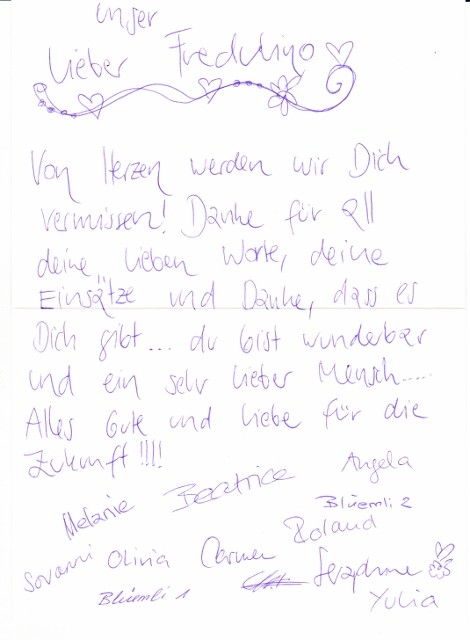 unser
lieber Fredulino
Von Herzen werden wir Dich
vermissen! Danke für all
deine lieben Worte, deine
Einsätze und Danke, dass es
Dich gibt... du bist wunderbar
und ein sehr lieber Mensch.....
Alles Gute und Liebe für die
Zukunft!!!!
Melanie Beatrice Angela
Blüemli 2
Roland
Sovanni Olivia Carmen
Seraphine
Blüemli 1
Yulia